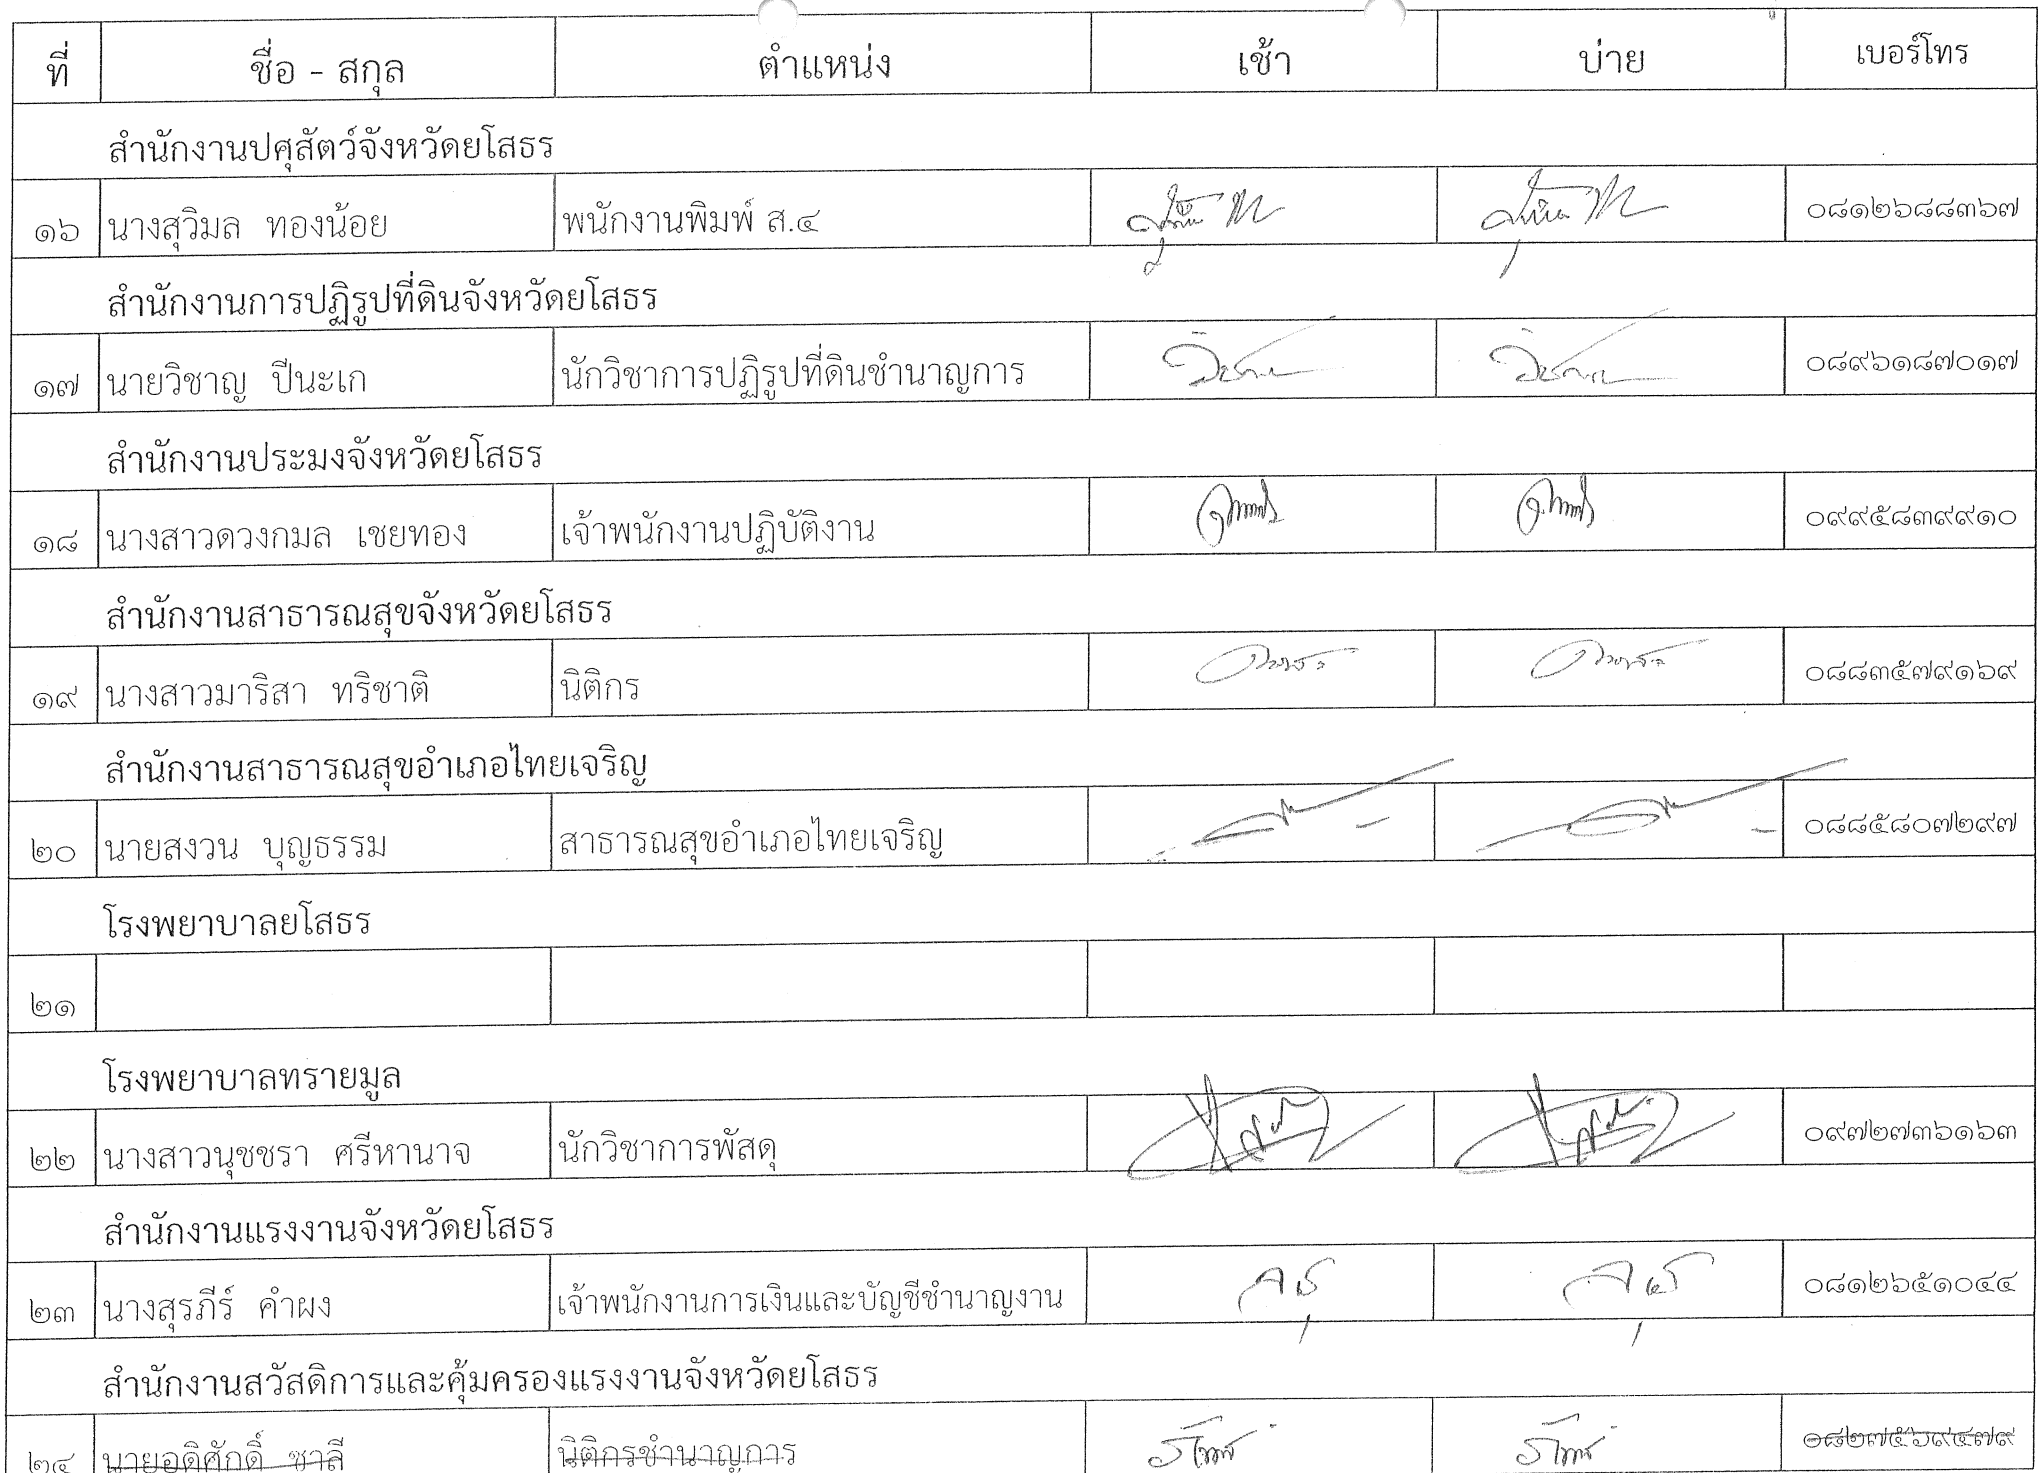 ที่ ชื่อ - สกุล ตำแหน่ง เช้า บ่าย เบอร์โทร
สำนักงานปศุสัตว์จังหวัดยโสธร
๑๖ นางสุวิมล ทองน้อย พนักงานพิมพ์ ส.๔ ๐๘๑๒๖๘๘๓๖๗
สำนักงานการปฏิรูปที่ดินจังหวัดยโสธร
๑๗ นายวิชาญ ปีนะเก นักวิชาการปฏิรูปที่ดินชำนาญการ ๐๘๙๖๑๘๗๐๑๗
สำนักงานประมงจังหวัดยโสธร
๑๘ นางสาวดวงกมล เชยทอง เจ้าพนักงานปฏิบัติงาน ๐๙๙๕๘๓๙๙๑๐
สำนักงานสาธารณสุขจังหวัดยโสธร
๑๙ นางสาวมาริสา ทริชาติ นิติกร ๐๘๘๓๕๗๙๑๖๙
สำนักงานสาธารณสุขอำเภอไทยเจริญ
๒๐ นายสงวน บุญธรรม สาธารณสุขอำเภอไทยเจริญ ๐๘๘๕๘๐๗๒๙๗
โรงพยาบาลยโสธร
๒๑
โรงพยาบาลทรายมูล
๒๒ นางสาวนุชชรา ศรีหานาจ นักวิชาการพัสดุ ๐๙๗๒๗๓๖๑๖๓
สำนักงานแรงงานจังหวัดยโสธร
๒๓ นางสุรภีร์ คำผง เจ้าพนักงานการเงินและบัญชีชำนาญงาน ๐๘๑๒๖๕๑๐๔๔
สำนักงานสวัสดิการและคุ้มครองแรงงานจังหวัดยโสธร
๒๔ นายอดิศักดิ์ ชาลี นิติกรชำนาญการ ๐๘๒๗๕๖๙๔๗๙